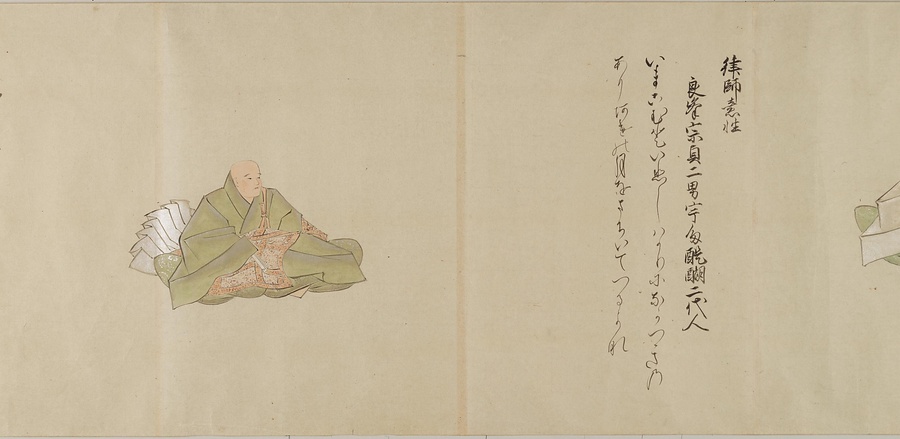 律師素性
良峯宗貞二男宇多醍醐二代人
いまこむといひしハかりになかつきの
ありあけの月をまちいてつるかな